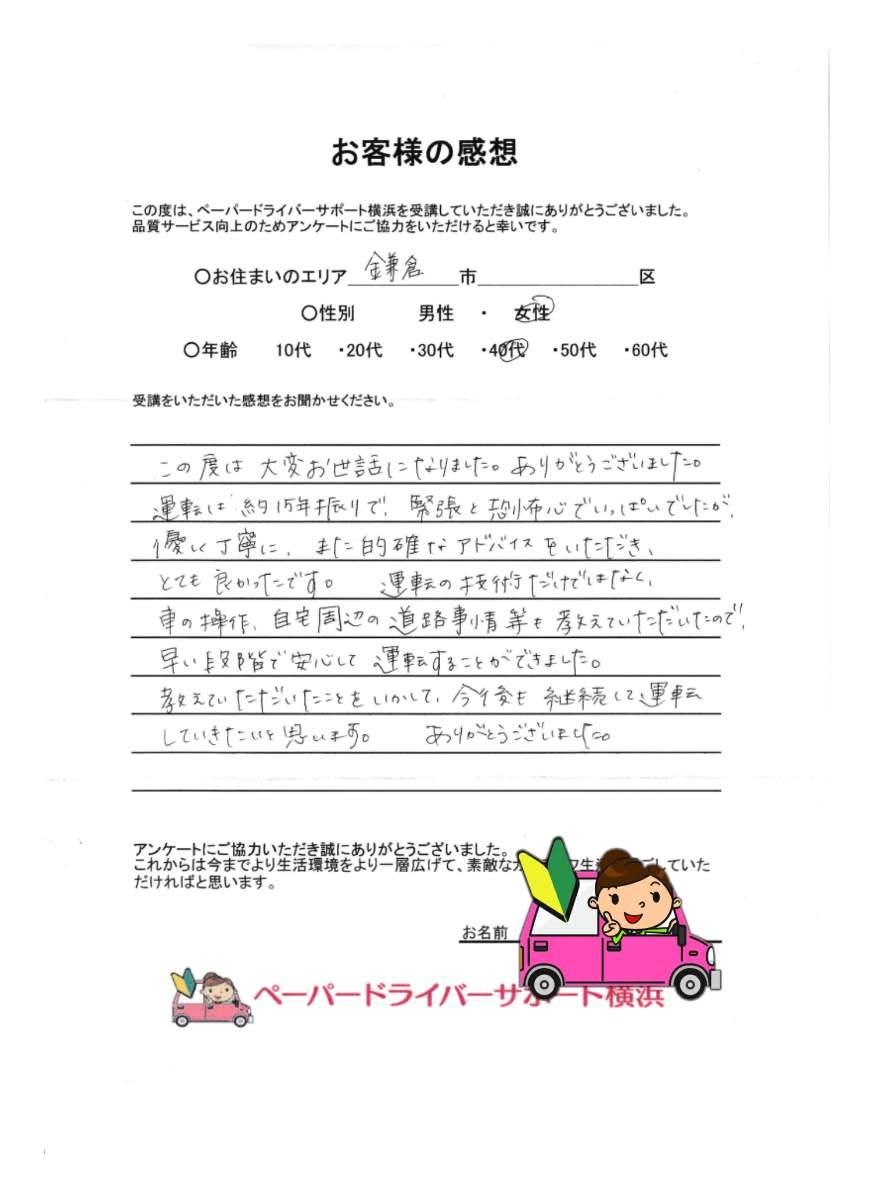 お客様の感想
この度は、ペーパードライバーサポート横浜を受講していただき誠にありがとうございました。
品質サービス向上のためアンケートにご協力をいただけると幸いです。
○お住まいのエリア 鎌倉 市 区
○性別 男性 ・ 女性
○年齢 10代 ・20代 ・30代 ・40代 ・50代 ・60代
受講をいただいた感想をお聞かせください。
この度は 大変お世話になりました。ありがとうございました。
運転は 約15年振りで、緊張と恐怖心でいっぱいでしたが、
優しく丁寧に、また的確なアドバイスをいただき、
とても良かったです。 運転の技術だけではなく、
車の操作、自宅周辺の道路事情等も教えていただいたので、
早い段階で安心して運転することができました。
教えていただいたことをいかして、今後も継続して運転
していきたいと思います。 ありがとうございました。
アンケートにご協力いただき誠にありがとうございました。
これからは今までより生活環境をより一層広げて、素敵な していた
だければと思います。
お名前
ペーパードライバーサポート横浜